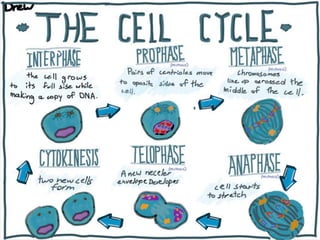 Drew
THE CELL CYCLE
INTERPHASE
the cell grows
to its full size while
making a copy of DNA.
PROPHASE
(mitosis)
Pairs of centrioles move
to oposite sides of the
cell.
METAPHASE
(mitosis)
chromosomes
line up accrossed the
middle of the cell.
CYTOKINESIS
two new cells
form
TELOPHASE
(mitosis)
A new neceler
envelope Developes
ANAPHASE
(mitosis)
cell starts
to stretch